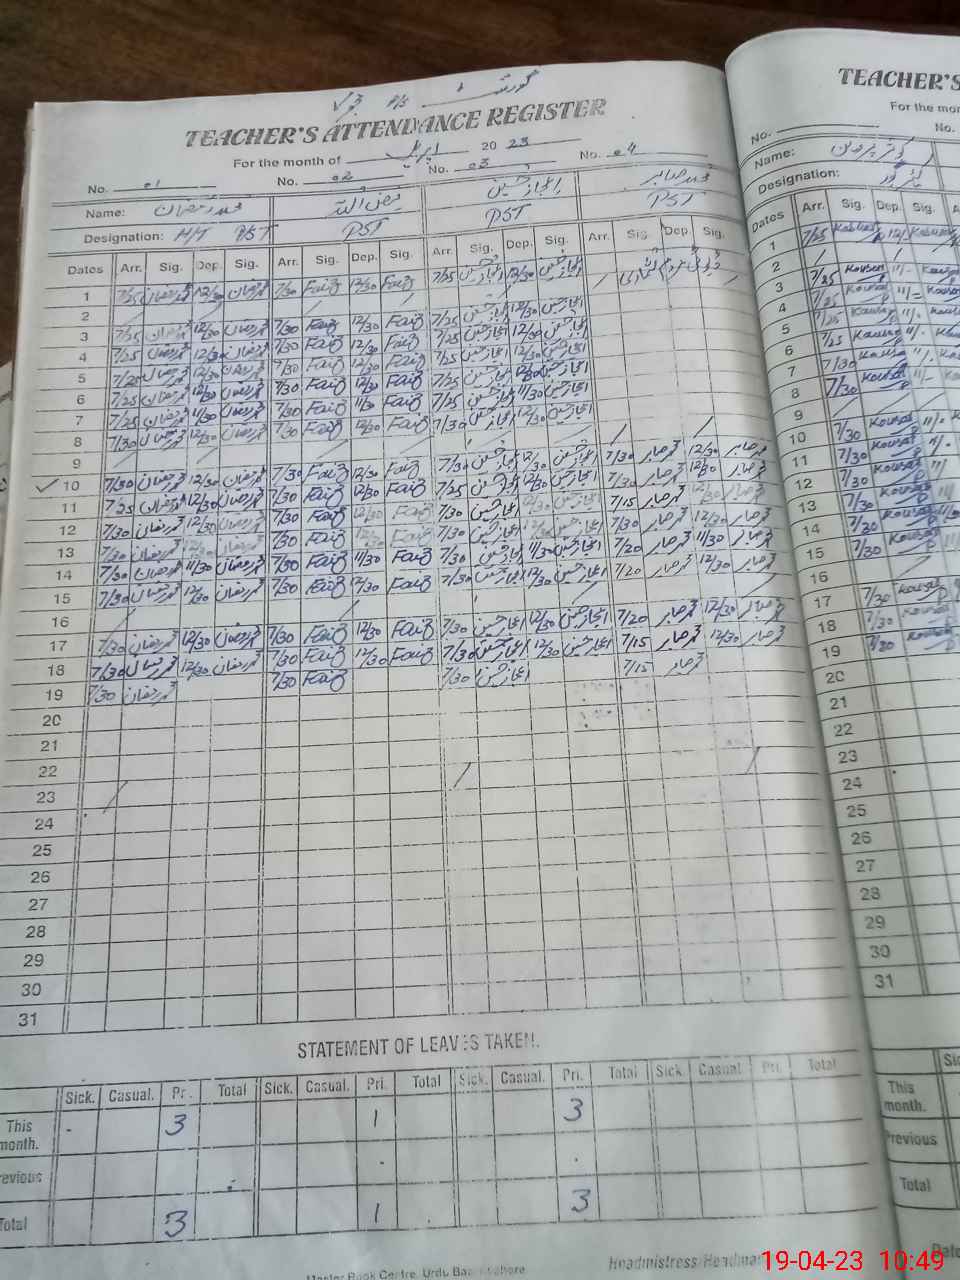 TEACHER'S ATTENDANCE REGISTER
For the month of اپریل 20 23
No. 01 No. 02 No. 03 No. 04
Name: محمد رمضان فیض اللہ اعجاز حسین محمد صابر
Designation: H/T PST PST PST PST
Dates Arr. Sig. Dep. Sig. Arr. Sig. Dep. Sig. Arr. Sig. Dep. Sig. Arr. Sig. Dep. Sig.
1 7/25 رمضان 12/30 رمضان 7/30 Faiz 12/30 Faiz 7/25 اعجاز حسین 12/30 اعجاز حسین
2
3 7/25 محمد رمضان 12/30 محمد رمضان 7/30 Faiz 12/30 Faiz 7/25 اعجاز حسین 12/30 اعجاز حسین
4 7/25 محمد رمضان 12/30 محمد رمضان 7/30 Faiz 12/30 Faiz 7/25 اعجاز حسین 12/30 اعجاز حسین
5 7/25 محمد رمضان 12/30 محمد رمضان 7/30 Faiz 12/30 Faiz 7/25 اعجاز حسین 12/30 اعجاز حسین
6 7/25 محمد رمضان 12/30 محمد رمضان 7/30 Faiz 12/30 Faiz 7/25 اعجاز حسین 12/30 اعجاز حسین
7 7/25 محمد رمضان 11/30 محمد رمضان 7/30 Faiz 11/30 Faiz 7/25 اعجاز حسین 11/30 اعجاز حسین
8 7/30 محمد رمضان 12/30 محمد رمضان 7/30 Faiz 12/30 Faiz 7/30 اعجاز حسین 12/30 اعجاز حسین
9
10 7/30 محمد رمضان 12/30 محمد رمضان 7/30 Faiz 12/30 Faiz 7/30 اعجاز حسین 12/30 اعجاز حسین 7/30 محمد صابر 12/30 محمد صابر
11 7/25 محمد رمضان 12/30 محمد رمضان 7/30 Faiz 12/30 Faiz 7/25 اعجاز حسین 12/30 اعجاز حسین 7/30 محمد صابر 12/30 محمد صابر
12 7/30 محمد رمضان 12/30 محمد رمضان 7/30 Faiz 12/30 Faiz 7/30 اعجاز حسین 12/30 اعجاز حسین 7/15 محمد صابر 12/30 محمد صابر
13 7/30 محمد رمضان 12/30 محمد رمضان 7/30 Faiz 12/30 Faiz 7/30 اعجاز حسین 12/30 اعجاز حسین 7/30 محمد صابر 12/30 محمد صابر
14 7/30 محمد رمضان 11/30 محمد رمضان 7/30 Faiz 11/30 Faiz 7/30 اعجاز حسین 11/30 اعجاز حسین 7/20 محمد صابر 11/30 محمد صابر
15 7/30 محمد رمضان 12/30 محمد رمضان 7/30 Faiz 12/30 Faiz 7/30 اعجاز حسین 12/30 اعجاز حسین 7/20 محمد صابر 12/30 محمد صابر
16
17 7/30 محمد رمضان 12/30 محمد رمضان 7/30 Faiz 12/30 Faiz 7/30 اعجاز حسین 12/30 اعجاز حسین 7/20 محمد صابر 12/30 محمد صابر
18 7/30 محمد رمضان 12/30 محمد رمضان 7/30 Faiz 12/30 Faiz 7/30 اعجاز حسین 12/30 اعجاز حسین 7/15 محمد صابر 12/30 محمد صابر
19 7/30 محمد رمضان 7/30 Faiz 7/30 اعجاز حسین 7/15 محمد صابر
20
21
22
23
24
25
26
27
28
29
30
31
STATEMENT OF LEAVES TAKEN.
Sick. Casual. Pri. Total Sick. Casual. Pri. Total Sick. Casual. Pri. Total Sick. Casual Pri. Total
This month. - 3 1 3
Previous
Total 3 1 3
Urdu Bazar Lahore
Headmistress/Headmas
TEACHER'S
For the mon
No. No.
Name: کوثر پروین
Designation:
Dates Arr. Sig. Dep. Sig.
1 7/25 Kousar
2
3 7/25 Kousar 11/- Kousar
4 7/25 Kousar 11/- Kousar
5 7/25 Kousar 11/- Kousar
6 7/25 Kousar 11/- Kousar
7 7/30 Kousar 11/- Kousar
8 7/30 Kousar 11/- Kousar
9
10 7/30 Kousar 11/-
11 7/30 Kousar 11/-
12 7/30 Kousar 11/
13 7/30 Kousar 11/
14 7/30 Kousar
15 7/30 Kousar
16
17 7/30 Kousar
18 7/30 Kousar
19 7/30 Kousar
20
21
22
23
24
25
26
27
28
29
30
31
This month.
Previous
Total
19-04-23 10:49